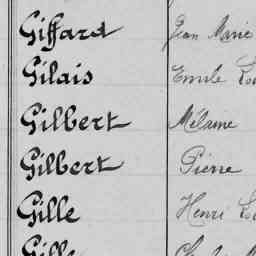 Giffard Jean Marie
Gilais Emile
Gilbert Mélanie
Gilbert Pierre
Gille Henri
Gille